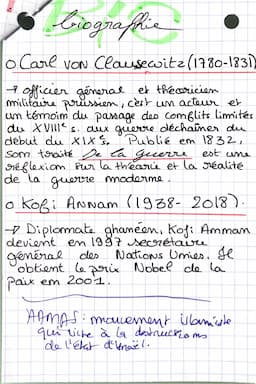 biographie
o Carl von Clausewitz (1780-1831)
→ officier général et théoricien
militaire prussien, c'est un acteur et
un témoin du passage des conflits limités
du XVIIIe s. aux guerre déchaînés du
début du XIXe s. Publié en 1832,
son traité De la guerre est une
réflexion sur la théorie et la réalité
de la guerre moderne.
o Kofi Annam (1938-2018).
→ Diplomate ghanéen, Kofi Amman
devient en 1997 secrétaire
général des Nations Unies. Il
obtient le prix Nobel de la
Paix en 2001.
HAMAS : mouvement islamiste
qui vise à la destructions
de l'état d'Israël.